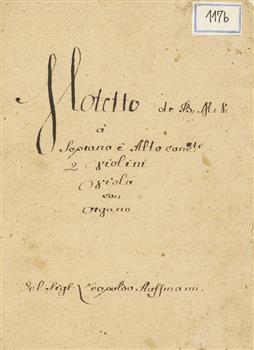 1176
Motetto de B. M. V.
à
Soprano è Alto conc:ti
2 Violini
Viola
con
Organo
Del Sigl: Leopoldo Hoffmann.